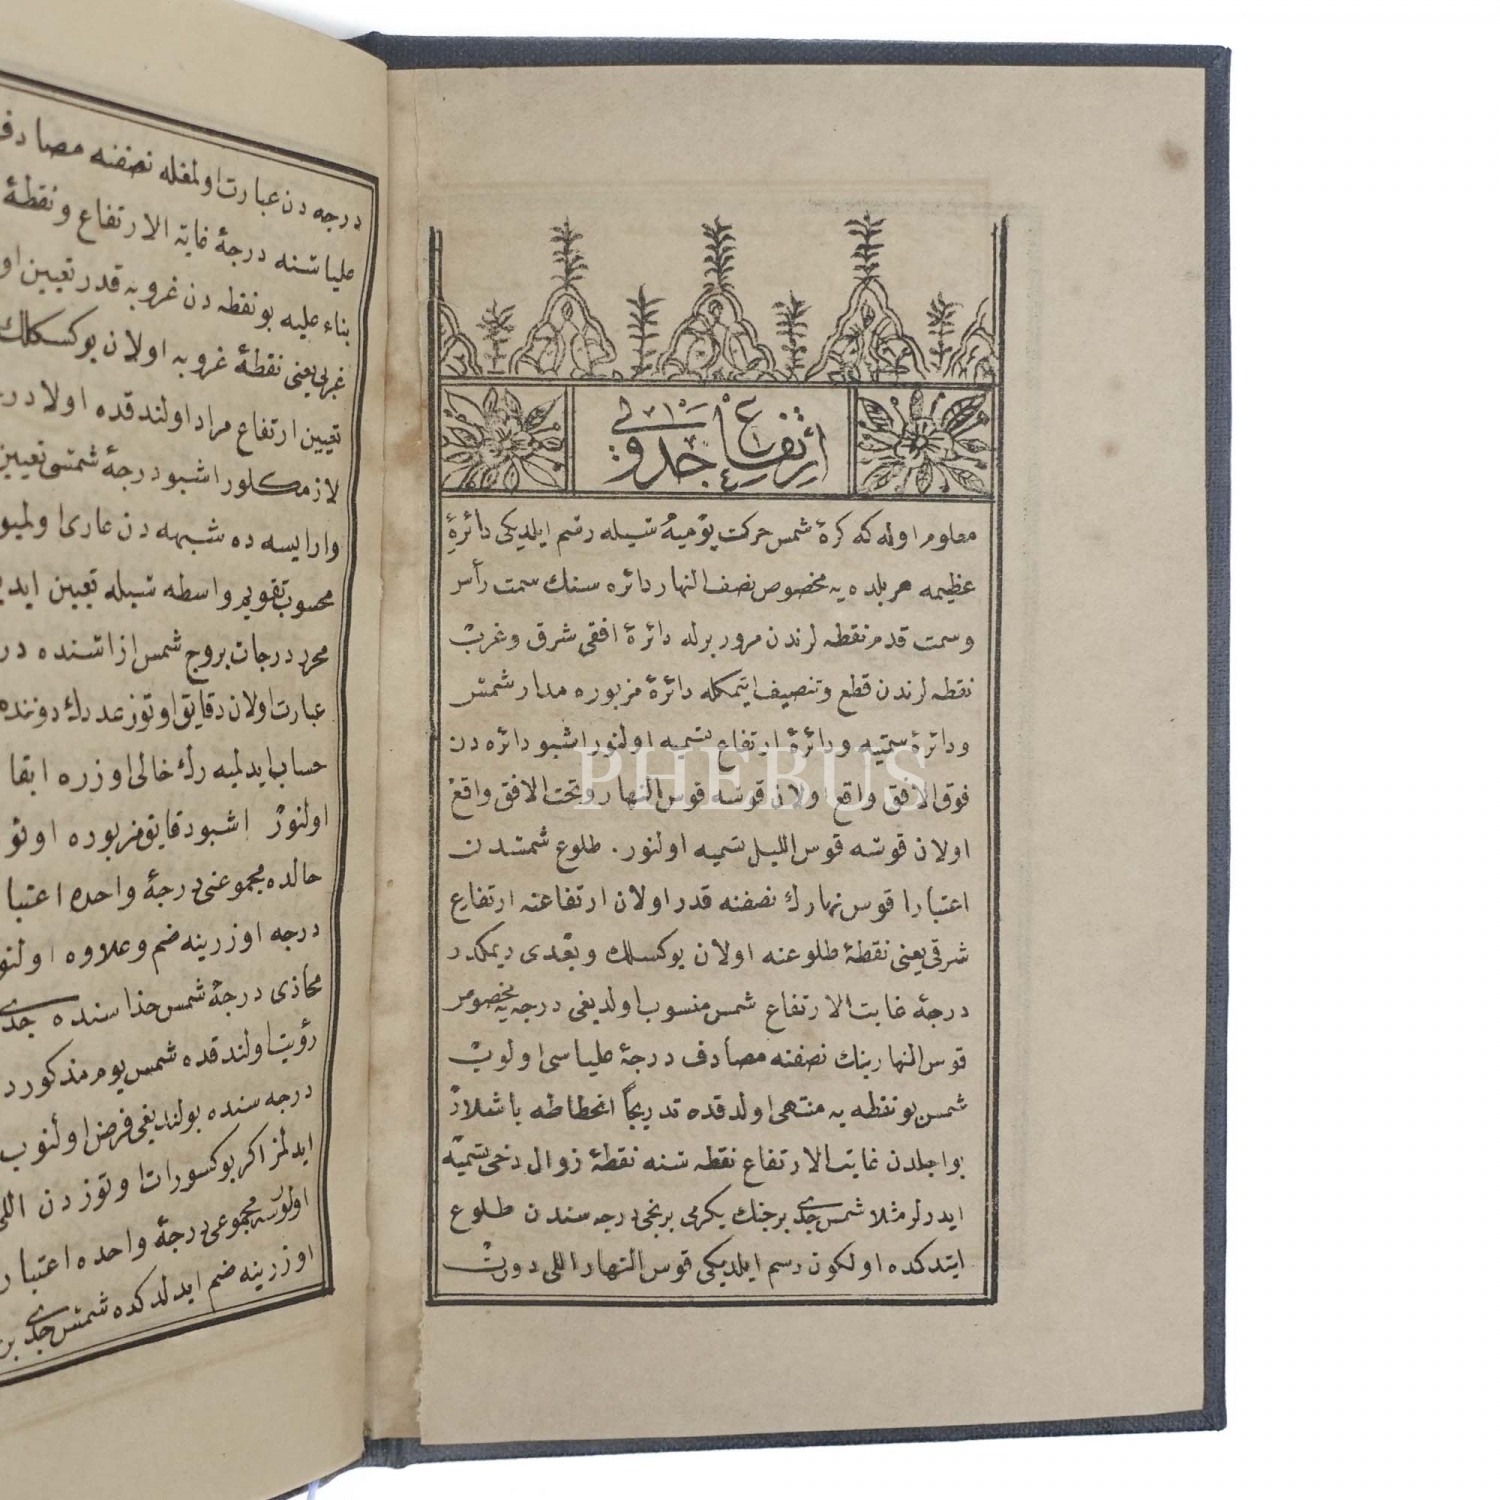 ارتفاع جدولی
معلوم اوله که کرۀ شمس حرکت یومیه‌سیله رسم ایلدیکی دائرۀ
عظیمه هر بلده یه مخصوص نصف النهار دائره سنك سمت رأس
و سمت قدم نقطه لرندن مرور برله دائرۀ افقی شرق و غرب
نقطه لرندن قطع و تنصیف ایتمکله دائرۀ مزبوره مدار شمس
و دائرۀ سمتیه و دائرۀ ارتفاع تسمیه اولنور اشبو دائره دن
فوق الافق واقع اولان قوسه قوس النهار و تحت الافق واقع
اولان قوسه قوس اللیل تسمیه اولنور. طلوع شمسدن
اعتبارا قوس نهارك نصفنه قدر اولان ارتفاعنه ارتفاع
شرقی یعنی نقطۀ طلوعنه اولان یوکسلك و بعدی دیمکدر
درجۀ غایت الارتفاع شمس منسوب اولدیغی درجه یه مخصوص
قوس النهارینك نصفنه مصادف درجۀ علیاسی اولوب
شمس بو نقطه یه منتهی اولدقده تدریجاً انحطاطه باشلار
بو اجلدن غایت الارتفاع نقطه سنه نقطۀ زوال دخی تسمیه
ایدرلر مثلا شمس جدی برجنك یکرمی برنجی درجه سندن طلوع
ایتدکده اولکون رسم ایلدیکی قوس النهار اللی درت
درجه دن عبارت اولمغله نصفنه مصادف
علیاسنه درجۀ غایة الارتفاع و نقطۀ
بناء علیه بو نقطه دن غروبه قدر تعیین او
غربی یعنی نقطۀ غروبه اولان یوکسکلك
تعیین ارتفاع مراد اولندقده اولا در
لازمکلور اشبو درجۀ شمسی تعیین
وار ایسه ده شبهه دن عاری اولمیو
محسوب تقویم واسطه سیله تعیین اید
محرر درجات بروج شمس ازاسنده در
عبارت اولان دقایق اوتوز عددك دوننده
حساب ایدلمیه رك خالی اوزره ابقا
اولنور اشبو دقایق مزبوره اوتو
حالده مجموعنی درجۀ واحده اعتبا
درجه اوزرینه ضم و علاوه اولنو
محاذی درجۀ شمس حذاسنده جدی
رؤیت اولندقده شمس یوم مذکورد
درجه سنده بولندیغی فرض اولنوب
ایدلمز اکر بو کسورات اوتوز دن اللی
اولورسه مجموعی درجۀ واحده اعتبار
اوزرینه ضم ایدلدکده شمس جدی بر
PHEBUS